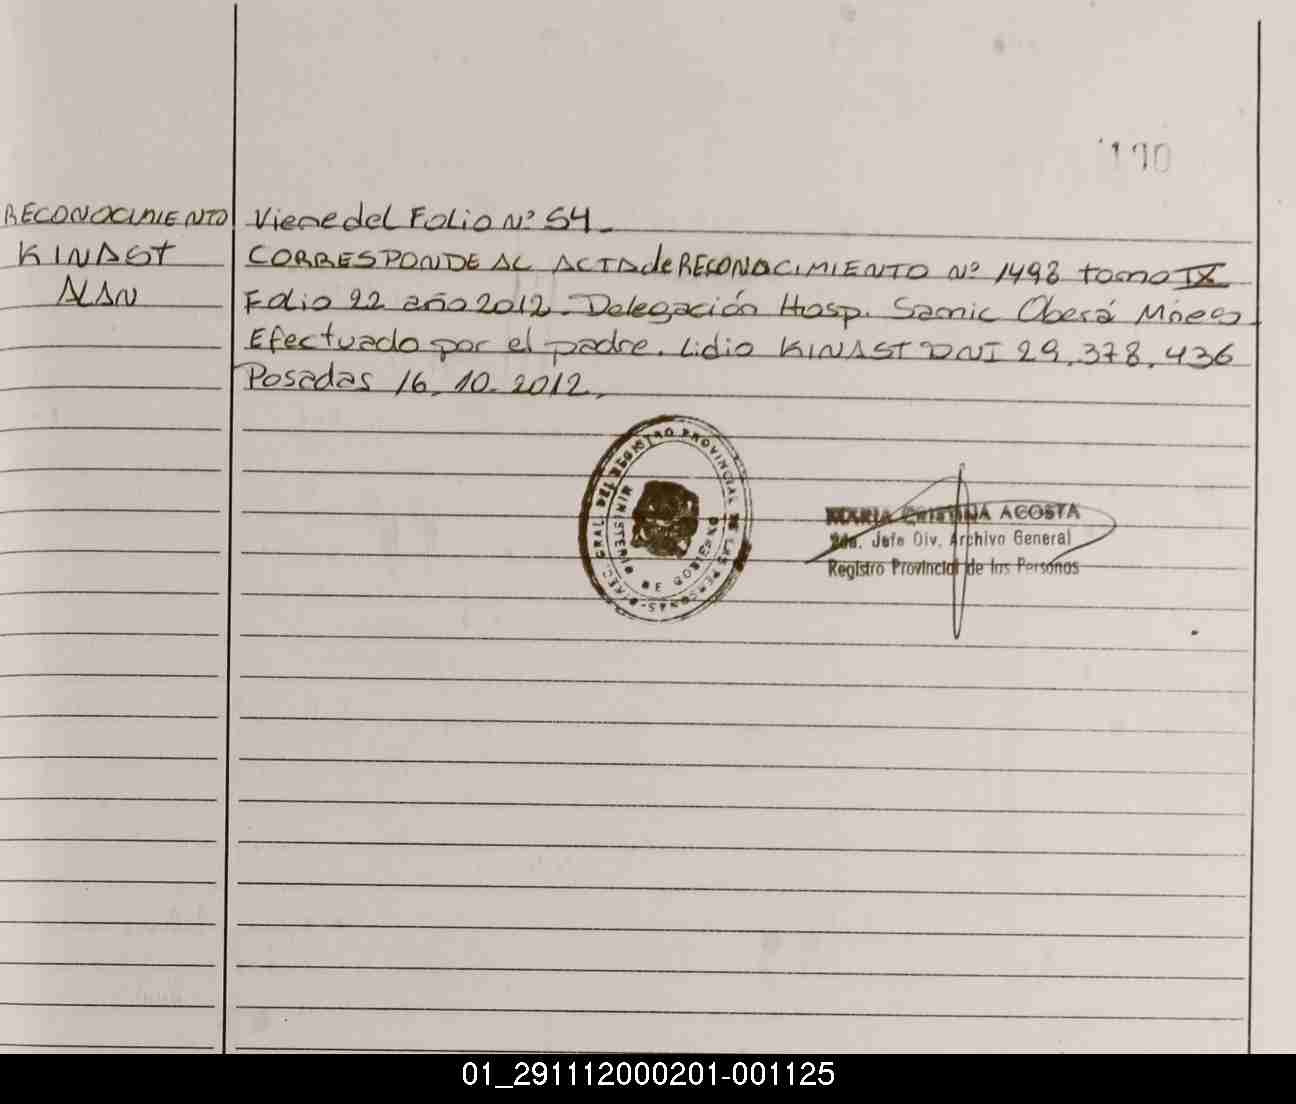 190
RECONOCIMIENTO
KINAST
ALAN
Viene del Folio Nº 54.
CORRESPONDE AL ACTA de RECONOCIMIENTO Nº 1498 tomo IX
Folio 22 año 2012. Delegación Hosp. Samic Oberá Mnes
Efectuado por el padre. Lidio KINAST DNI 29.378.436
Posadas 16.10.2012.
DIREC. GRAL. DEL REGISTRO PROVINCIAL DE LAS PERSONAS
MINISTERIO DE GOBIERNO
MARIA CRISTINA ACOSTA
2da. Jefe Div. Archivo General
Registro Provincial de las Personas
01_291112000201-001125